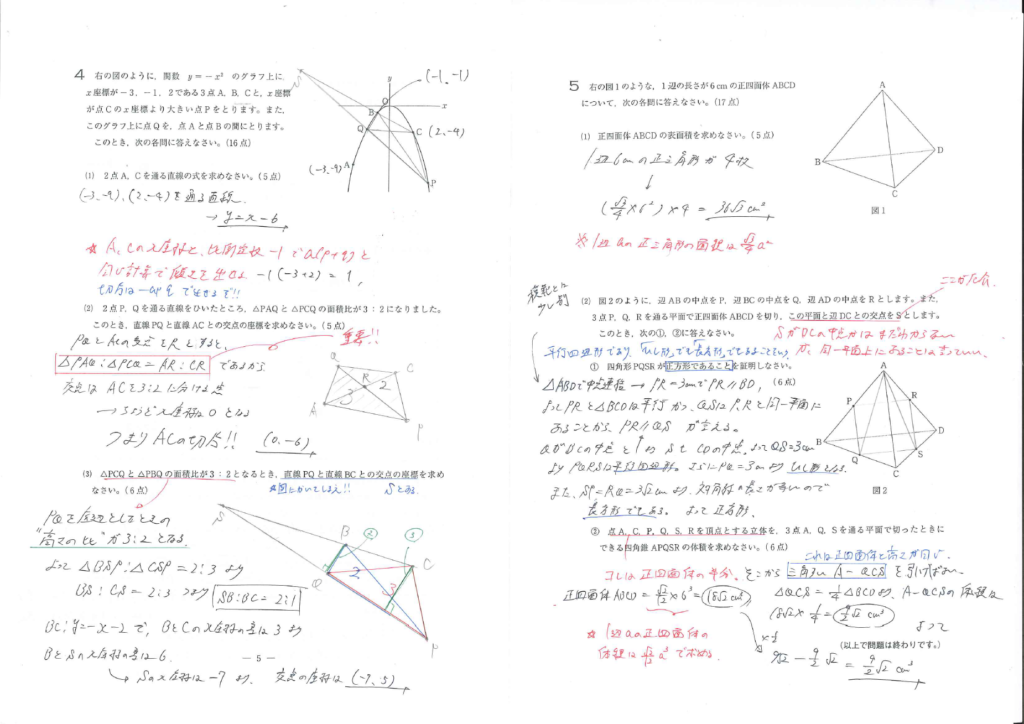 4 右の図のように、関数 y=-x² のグラフ上に
x座標が-3、-1、2である3点A、B、Cと、x座標
が点Cのx座標より大きい点Pをとります。また、
このグラフ上に点Qを、点Aと点Bの間にとります。
このとき、次の各問に答えなさい。(16点)
(-1, -1)
y
O
x
B
Q
C (2, -4)
(-3, -9) A
P
(1) 2点A、Cを通る直線の式を求めなさい。(5点)
(-3, -9), (2, -4)を通る直線
→ y=x-6
★ A, Cのx座標と、比例定数 -1 で a(p+q) と
-1(-3+2) = 1,
(2) 2点P、Qを通る直線をひいたところ、△PAQと△PCQの面積比が3:2になりました。
このとき、直線PQと直線ACとの交点の座標を求めなさい。(5点)
PQとACの交点をRとすると、
重要!!
△PAQ:△PCQ = AR:CR であるから
交点は ACを3:2に分ける点
→ x座標は0となる
つまりACの切片!! (0, -6)
Q
C
R
3
2
A
P
(3) △PCQと△PBQの面積比が3:2となるとき、直線PQと直線BCとの交点の座標を求め
なさい。(6点)
Sとする
PQを底辺としたときの
"高さの比"が3:2となる
よって △BSP:△CSP = 2:3 より
BS:CS = 2:3 つまり SB:BC = 2:1
BC:y=-x-2で、BとCのx座標の差は3より
BとSのx座標の差は6.
→ Sのx座標は-7より、交点の座標は (-7, 5)
S
B
②
③
C
Q
2
3
P
- 5 -
5 右の図1のような、1辺の長さが6cmの正四面体ABCD
について、次の各問に答えなさい。(17点)
(1) 正四面体ABCDの表面積を求めなさい。(5点)
1辺6cmの正三角形が4枚
↓
(√3/4 × 6²) × 4 = 36√3 cm²
※ 1辺aの正三角形の面積は √3/4 a²
A
B
D
C
図1
(2) 図2のように、辺ABの中点をP、辺BCの中点をQ、辺ADの中点をRとします。また、
3点P、Q、Rを通る平面で正四面体ABCDを切り、この平面と辺DCとの交点をSとします。
このとき、次の①、②に答えなさい。
SがDCの中点かはまだわからない
① 四角形PQSRが正方形であることを証明しなさい。
(6点)
△ABDで中点連結 → PR=3cmでPR∥BD,
よってPRと△BCDは平行かつ、QSはP,Rと同一平面に
あることから、PR∥QSが言える。
よってQS=3cm
より PQRSは平行四辺形。さらにPQ=3cmよりひし形となる。
また、SP=RQ=3√2cmより、対角線の長さが等しいので
長方形でもある。よって正方形。
A
P
R
B
D
Q
S
C
図2
② 点A、C、P、Q、S、Rを頂点とする立体を、3点A、Q、Sを通る平面で切ったときに
できる四角錐APQSRの体積を求めなさい。(6点)
これは正四面体と高さが同じ.
コレは正四面体の半分。そこから 三角すい A-QCS を引けばよい。
正四面体ABCD = √2/12 × 6³ = 18√2 cm³
△QCS = 1/4 △BCDより、A-QCSの体積は
18√2 × 1/4 = 9/2 √2 cm³
よって
★ 1辺aの正四面体の
体積は √2/12 a³ で求める.
×1/2
9√2 - 9/2 √2 = 9/2 √2 cm³
(以上で問題は終わりです。)